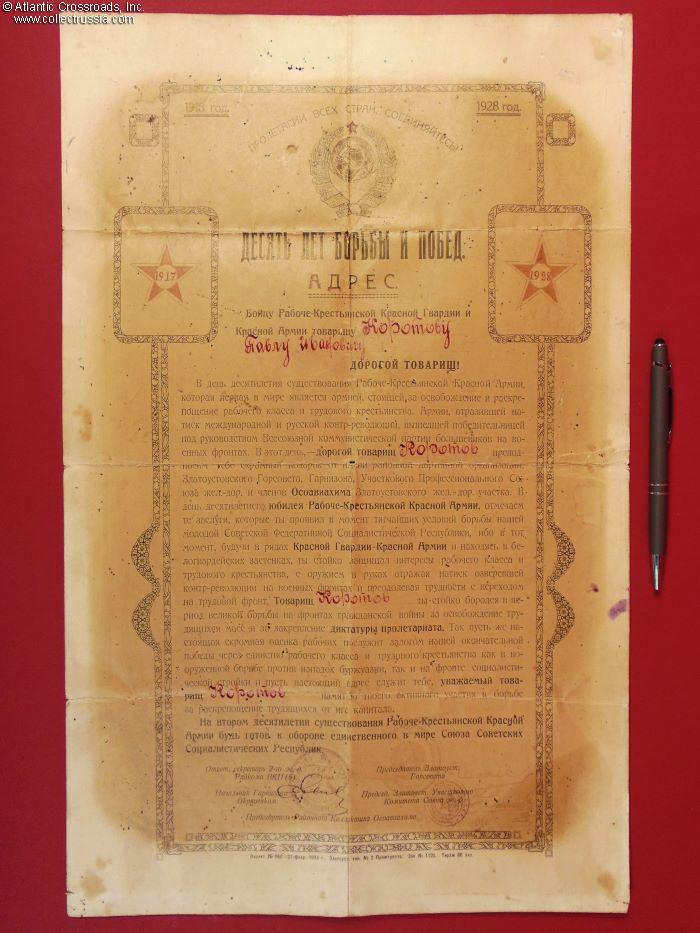 © Atlantic Crossroads, Inc.
www.collectrussia.com
1918 год. 1928 год.
ПРОЛЕТАРИИ ВСЕХ СТРАН, СОЕДИНЯЙТЕСЬ!
ДЕСЯТЬ ЛЕТ БОРЬБЫ И ПОБЕД.
АДРЕС.
1917 1928
Бойцу Рабоче-Крестьянской Красной Гвардии и
Красной Армии товарищу Коротову
Павлу Ивановичу
ДОРОГОЙ ТОВАРИЩ!
В день десятилетия существования Рабоче-Крестьянской Красной Армии,
которая первая в мире является армией, стоящей за освобождение и раскре-
пощение рабочего класса и трудового крестьянства. Армии, отразившей на-
тиск международной и русской контр-революций, вышедшей победительницей
под руководством Всесоюзной коммунистической партии большевиков на во-
енных фронтах. В этот день, —дорогой товарищ Коротов препод-
носим тебе скромный подарок от районной партийной организации,
Златоустовского Горсовета, Гарнизона, Участкового Профессионального Со-
юза жел.-дор. и членов Осоавиахима Златоустовского жел.-дор. участка. В
день десятилетнего юбилея Рабоче-Крестьянской Красной Армии, отмечаем
те заслуги, которые ты проявил в момент тягчайших условий борьбы нашей
молодой Советской Федеративной Социалистической Республики, ибо в тот
момент, будучи в рядах Красной Гвардии-Красной Армии и находясь в бе-
логвардейских застенках, ты стойко защищал интересы рабочего класса и
трудового крестьянства, с оружием в руках отражая натиск озверевшей
контр-революции на военных фронтах и преодолевая трудности с переходом
на трудовой фронт. Товарищ Коротов ты-стойко боролся в пе-
риод великой борьбы на фронтах гражданской войны за освобождение тру-
дящихся масс и за закрепление диктатуры пролетариата. Так пусть же на-
стоящая скромная оценка рабочих послужит залогом нашей окончательной
победы через единство рабочего класса и трудового крестьянства как в во-
оруженной борьбе против нападок буржуазии, так и на фронте социалисти-
ческой стройки и пусть настоящий адрес служит тебе, уважаемый това-
рищ Коротов памятью твоего активного участия в борьбе
за раскрепощение трудящихся от ига капитала.
На втором десятилетии существования Рабоче-Крестьянской Красной
Армии будь готов к обороне единственного в мире Союза Советских
Социалистических Республик.
Ответ. секретарь 2-го ж.-д.
Райкома ВКП(б)
Председатель Златоуст.
Горсовета
Начальник Гарнизона
Председ. Златоуст. Участкового
Комитета Союза ж.-д.
Председатель Районного Коллектива Осоавиахима